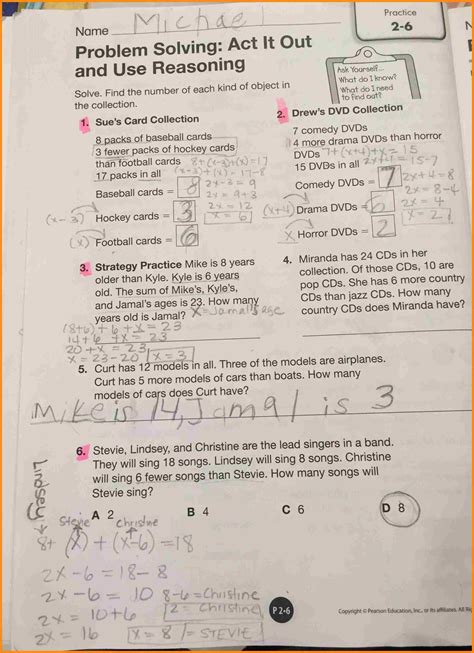 Name Michael
Practice
2-6
Problem Solving: Act It Out
and Use Reasoning
Ask Yourself...
What do I know?
What do I need
to find out?
Solve. Find the number of each kind of object in
the collection.
1. Sue's Card Collection
8 packs of baseball cards
3 fewer packs of hockey cards
than football cards 8+(x-3)+(x)=17
17 packs in all (x-3)+(x)=17-8
2x-3=9
Baseball cards = 8 2x=9+3
2x=12
(x-3) Hockey cards = 3 x=6
(x) Football cards = 6
2. Drew's DVD Collection
7 comedy DVDs
4 more drama DVDs than horror
DVDs 7+(x+4)+x=15
15 DVDs in all 2x+4=15-7
Comedy DVDs = 7 2x+4=8
2x=8-4
(x+4) Drama DVDs = 6 2x=4
x=2
x Horror DVDs = 2
3. Strategy Practice Mike is 8 years
older than Kyle. Kyle is 6 years
old. The sum of Mike's, Kyle's,
and Jamal's ages is 23. How many
years old is Jamal? x=Jamal's age
(8+6)+6+x=23
14+6+x=23
20+x=23
x=23-20 x=3
4. Miranda has 24 CDs in her
collection. Of those CDs, 10 are
pop CDs. She has 6 more country
CDs than jazz CDs. How many
country CDs does Miranda have?
5. Curt has 12 models in all. Three of the models are airplanes.
Curt has 5 more models of cars than boats. How many
models of cars does Curt have?
Mike is 14, Jamal is 3
6. Stevie, Lindsey, and Christine are the lead singers in a band.
They will sing 18 songs. Lindsey will sing 8 songs. Christine
will sing 6 fewer songs than Stevie. How many songs will
Stevie sing?
A 2
B 4
C 6
D 8
Lindsey → Stevie Christine
8+(x)+(x-6)=18
2x-6=18-8
2x-6=10 8-6=Christine
2x=10+6 2=Christine
2x=16 x=8/=STEVIE
P 2-6
Copyright © Pearson Education, Inc., or its affiliates. All Ri